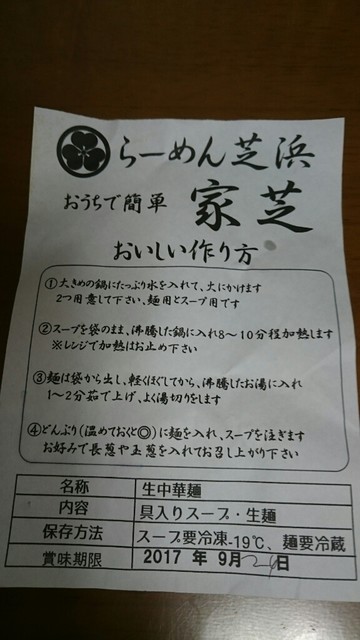 らーめん芝浜
おうちで簡単 家芝
おいしい作り方
①大きめの鍋にたっぷり水を入れて、火にかけます
2つ用意して下さい、麺用とスープ用です
②スープを袋のまま、沸騰した鍋に入れ8〜10分程加熱します
※レンジで加熱はお止め下さい
③麺は袋から出し、軽くほぐしてから、沸騰したお湯に入れ
1〜2分茹で上げ、よく湯切りをします
④どんぶり(温めておくと◎)に麺を入れ、スープを注ぎます
お好みで長葱や玉葱を入れてお召し上がり下さい
名称 生中華麺
内容 具入りスープ・生麺
保存方法 スープ要冷凍-19℃、麺要冷蔵
賞味期限 2017 年 9月 日